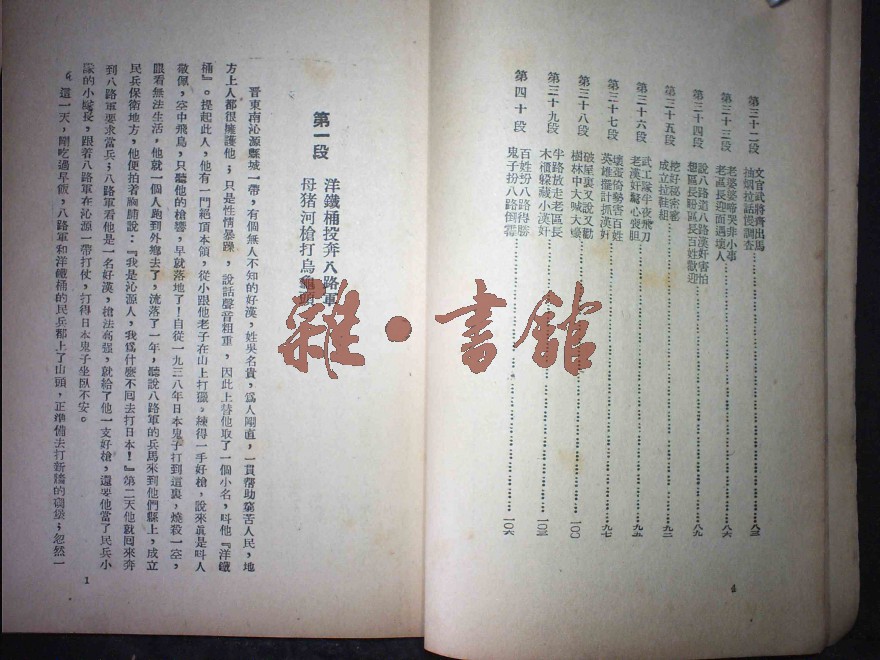 第三十二段
文官武將齊出馬
抽烟拉話慢調查
八三
第三十三段
老婆婆啼哭非小事
老區長迎面遇壞人
八六
第三十四段
說八路道八路漢奸害怕
想區長盼區長百姓歡迎
八九
第三十五段
挖好秘密窰
成立拉鞋組
九二
第三十六段
武工隊半夜飛刀
老漢奸驚心喪胆
九五
第三十七段
壞蛋倚勢害百姓
英雄擺計抓漢奸
九七
第三十八段
破屋裏又說又勸
樹林中大喊大嚷
一〇〇
第三十九段
半路放走老區長
木櫃躲藏小漢奸
一〇三
第四十段
百姓扮八路得勝
鬼子扮八路倒霉
一〇六
4
第一段
洋鐵桶投奔八路軍
母猪河槍打烏龜
晉東南沁源縣城一帶，有個無人不知的好漢，姓吳名貴，爲人剛直，一貫帮助窮苦人民，地
方上人都很擁護他；只是性情暴躁，說話聲音粗重，因此上替他取了一個小名，叫他『洋鐵
桶』。提起此人，他有一門絕頂本領，從小跟他老子在山上打獵。練得一手好槍，說來眞是叫人
敬佩，空中飛鳥，只聽他的槍響，早就落地了！自從一九三八年日本鬼子打到這裏，燒殺一空，
眼看無法生活，他就一個人跑到外鄉去了，流落了一年，聽說八路軍的兵馬來到他們縣上，成立
民兵保衛地方，他便拍着胸脯說：『我是沁源人，我爲什麼不囘去打日本！』第二天他就囘來奔
到八路軍要求當兵；八路軍看他是一名好漢，槍法高强，就給了他一支好槍，還要他當了民兵小
隊的小隊長，跟着八路軍在沁源一帶打仗，打得日本鬼子坐臥不安。
這一天，剛吃過早飯，八路軍和洋鐵桶的民兵都上了山頭，正準備去打新修的碉堡；忽然一
1
雜·書館